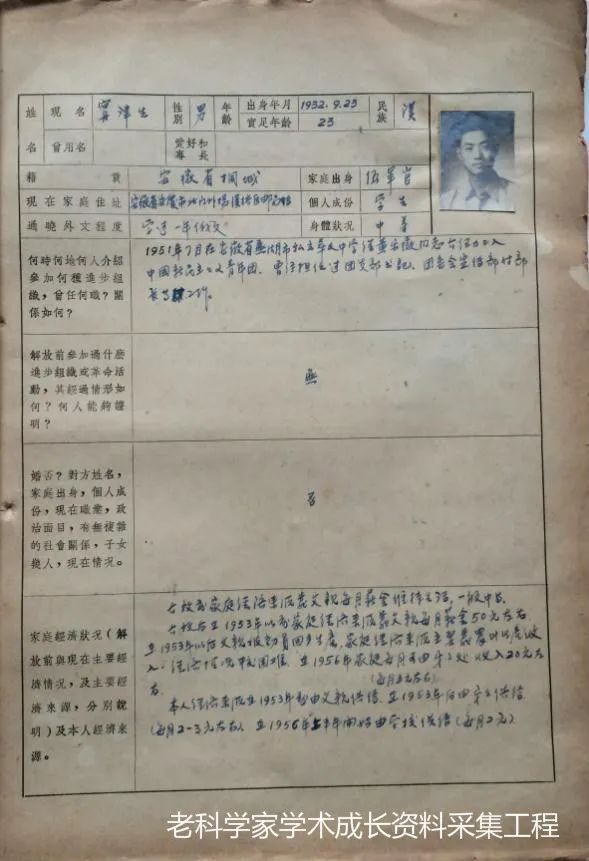 姓 現名 寗津生 性別 男 年齡 出身年月 1932.9.23 民族 漢
名 曾用名 愛好和專長 實足年齡 23
籍貫 安徽省桐城 家庭出身 偽軍官
現在家庭住址 安徽省安慶市 個人成份 学生
通曉外文程度 学过一年俄文 身體狀況 中等
何時何地何人介紹
參加何種進步組
織，曾任何職？關
係如何？
1951年7月在安徽省蕪湖市私立萃文中学经 同志介绍加入
中国新民主主义青年团。曾经担任过团支部书记、团总会宣传部付部
长等工作。
解放前參加過什麼
進步組織或革命活
動，其經過情形如
何？何人能夠證
明？
無
婚否？對方姓名，
家庭出身，個人成
份，現在職業，政
治面目，有無複雜
的社會關係，子女
幾人，現在情況。
否
家庭經濟狀況（解
放前與現在主要經
濟情況，及主要經
濟來源，分別說
明）及本人經濟來
源。
解放前家庭经济来源靠父親每月薪金維持生活，一般中等。
解放后在1953年以前家庭经济来源靠父親每月薪金50元左右
在1953年以后父親被动員回乡生產，家庭经济来源主要靠 收
入，经济情况較困难。在1956年家庭每月可由 处收入20元左
右。（每月3元左右）
本人经济来源在1953年前由父親供给，在1953年后由 供给
（每月2-3元左右），在1956年上半年開始由学校供给（每月2元）
老科学家学术成长资料采集工程